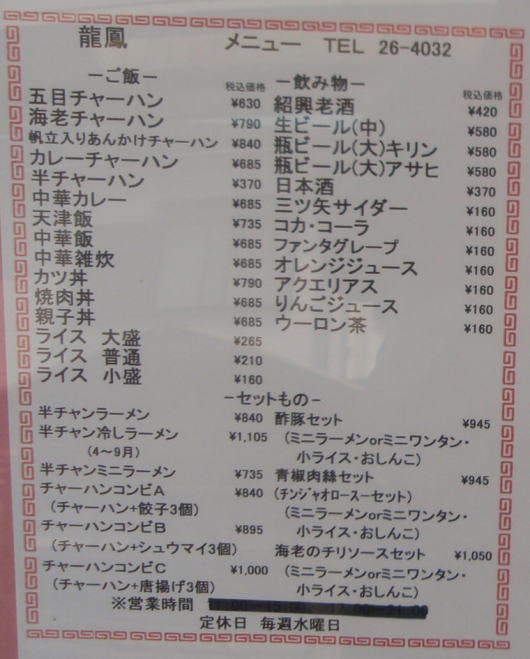 龍鳳 メニュー TEL 26-4032
－ご飯－
税込価格
五目チャーハン ¥630
海老チャーハン ¥790
帆立入りあんかけチャーハン ¥840
カレーチャーハン ¥685
半チャーハン ¥370
中華カレー ¥685
天津飯 ¥735
中華飯 ¥685
中華雑炊 ¥685
カツ丼 ¥790
焼肉丼 ¥685
親子丼 ¥685
ライス 大盛 ¥265
ライス 普通 ¥210
ライス 小盛 ¥160
－飲み物－
税込価格
紹興老酒 ¥420
生ビール(中) ¥580
瓶ビール(大)キリン ¥580
瓶ビール(大)アサヒ ¥580
日本酒 ¥370
三ツ矢サイダー ¥160
コカ・コーラ ¥160
ファンタグレープ ¥160
オレンジジュース ¥160
アクエリアス ¥160
りんごジュース ¥160
ウーロン茶 ¥160
－セットもの－
半チャンラーメン ¥840
半チャン冷しラーメン ¥1,105
(4～9月)
半チャンミニラーメン ¥735
チャーハンコンビA ¥840
(チャーハン+餃子3個)
チャーハンコンビB ¥895
(チャーハン+シュウマイ3個)
チャーハンコンビC ¥1,000
(チャーハン+唐揚げ3個)
酢豚セット ¥945
(ミニラーメンorミニワンタン・
小ライス・おしんこ)
青椒肉絲セット ¥945
(チンジャオロースーセット)
(ミニラーメンorミニワンタン・
小ライス・おしんこ)
海老のチリソースセット ¥1,050
(ミニラーメンorミニワンタン・
小ライス・おしんこ)
※営業時間
定休日 毎週水曜日